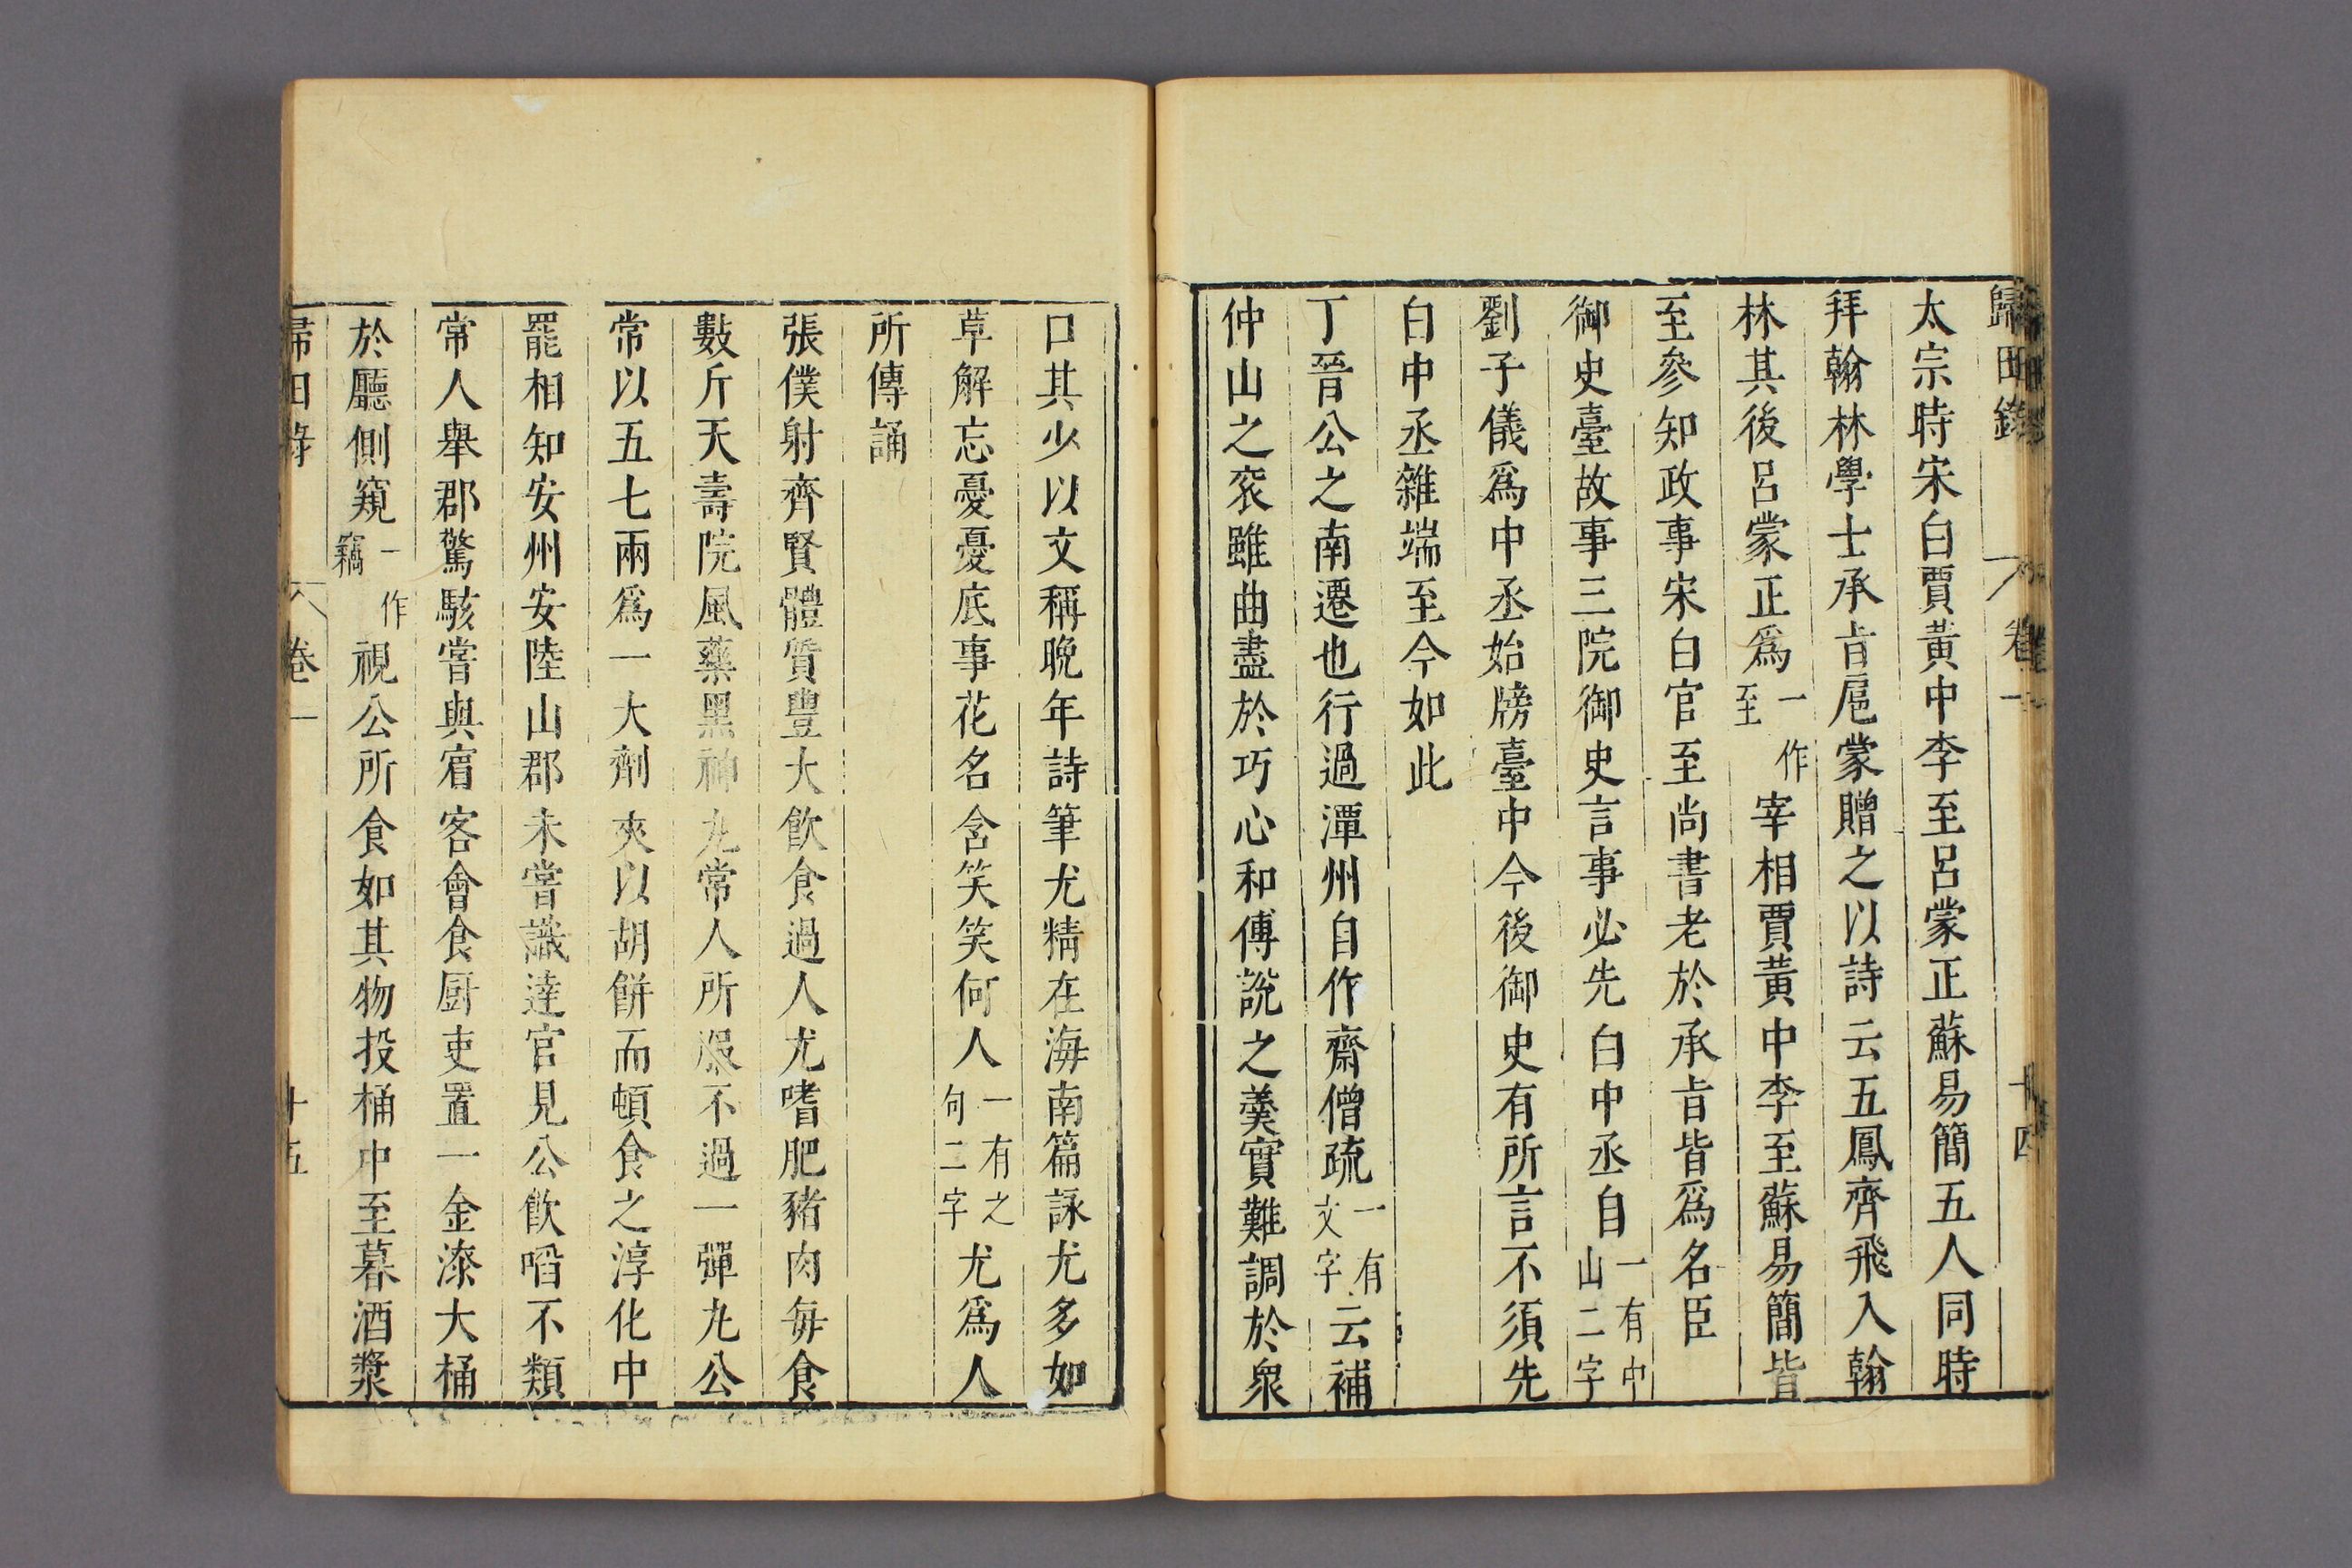 歸田錄 卷一 十四
太宗時宋白賈黃中李至呂蒙正蘇易簡五人同時
拜翰林學士承旨扈蒙贈之以詩云五鳳齊飛入翰
林其後呂蒙正爲一作至宰相賈黃中李至蘇易簡皆
至參知政事宋白官至尚書老於承旨皆爲名臣
御史臺故事三院御史言事必先白中丞自一有中山二字
劉子儀爲中丞始牓臺中今後御史有所言不須先
白中丞雜端至今如此
丁晉公之南遷也行過潭州自作齋僧疏一有文字云補
仲山之衮雖曲盡於巧心和傅說之羹實難調於衆
口其少以文稱晚年詩筆尤精在海南篇詠尤多如
草解忘憂憂底事花名含笑笑何人一有之句二字尤爲人
所傳誦
張僕射齊賢體質豐大飲食過人尤嗜肥豬肉每食
數斤天壽院風藥黑神丸常人所服不過一彈丸公
常以五七兩爲一大劑夾以胡餅而頓食之淳化中
罷相知安州安陸山郡未嘗識達官見公飲啗不類
常人舉郡驚駭嘗與賔客會食厨吏置一金漆大桶
於廳側窺一作竊視公所食如其物投桶中至暮酒漿
歸田錄 卷一 十五